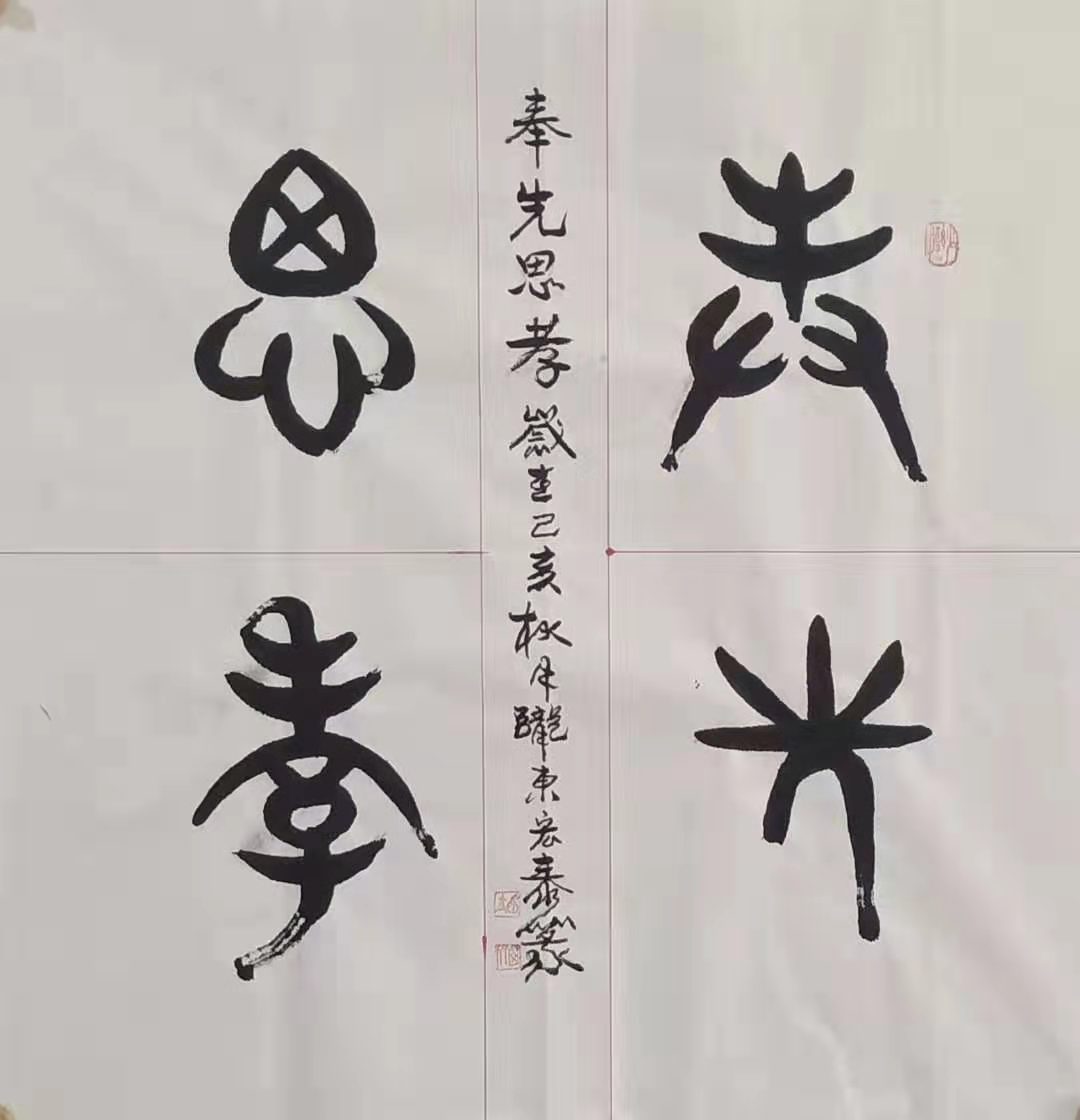 奉先
思孝
奉先思孝歲在己亥秋月隴東宏泰篆